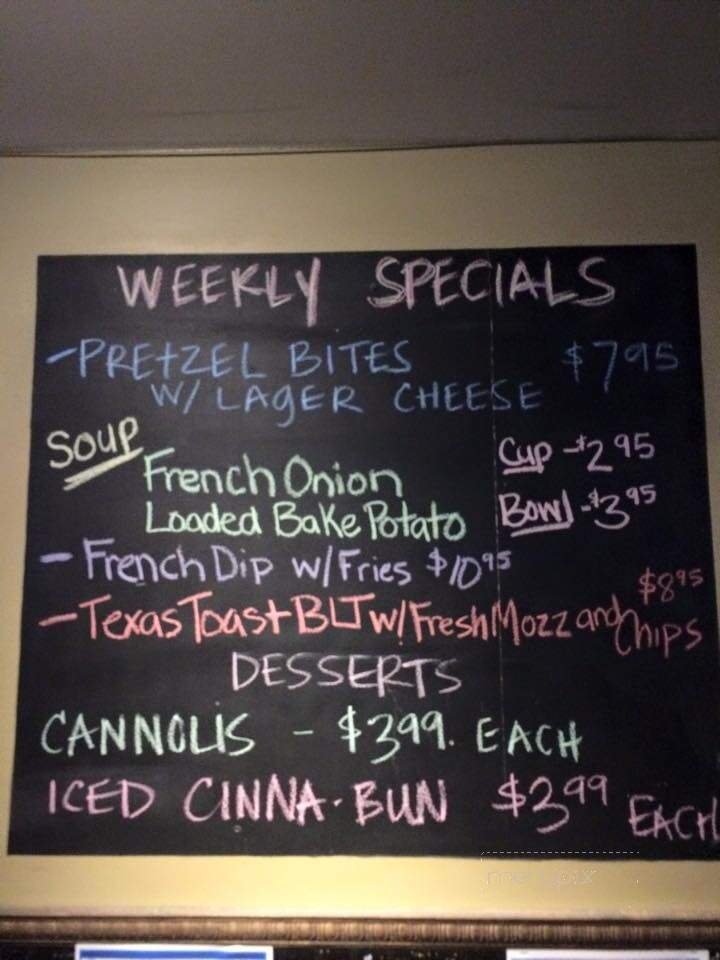 WEEKLY SPECIALS
-PRETZEL BITES $7 95
W/ LAGER CHEESE
Soup
French Onion Cup -$2 95
Loaded Bake Potato Bowl -$3 95
- French Dip w/Fries $10 95
$8 95
- Texas Toast BLT w/ Fresh Mozz and Chips
DESSERTS
CANNOLIS - $3 99. EACH
ICED CINNA-BUN $3 99 EACH